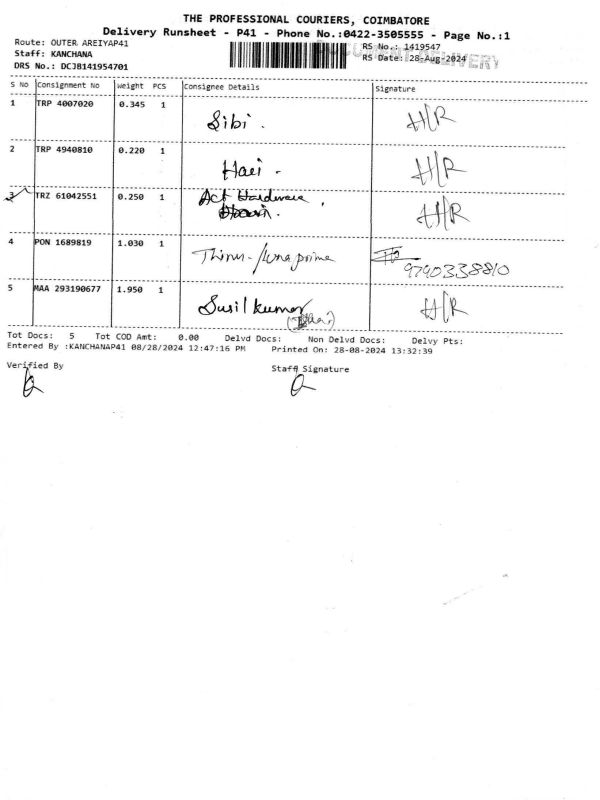 THE PROFESSIONAL COURIERS, COIMBATORE
Delivery Runsheet - P41 - Phone No.:0422-3505555 - Page No.:1
Route: OUTER AREIYAP41 RS No.: 1419547
Staff: KANCHANA RS Date: 28-Aug-2024
DRS No.: DCJB141954701 DELIVERY
S No Consignment No Weight PCS Consignee Details Signature
1 TRP 4007020 0.345 1 Sibi. H/R
2 TRP 4940810 0.220 1 Hari - H/R
3 TRZ 61042551 0.250 1 Act Hardware, H/R
4 PON 1689819 1.030 1 Thirus-/lunaprime
9790338810
5 MAA 293190677 1.950 1 Susil kumar H/R
Tot Docs: 5 Tot COD Amt: 0.00 Delvd Docs: Non Delvd Docs: Delvy Pts:
Entered By :KANCHANAP41 08/28/2024 12:47:16 PM Printed On: 28-08-2024 13:32:39
Verified By Staff Signature